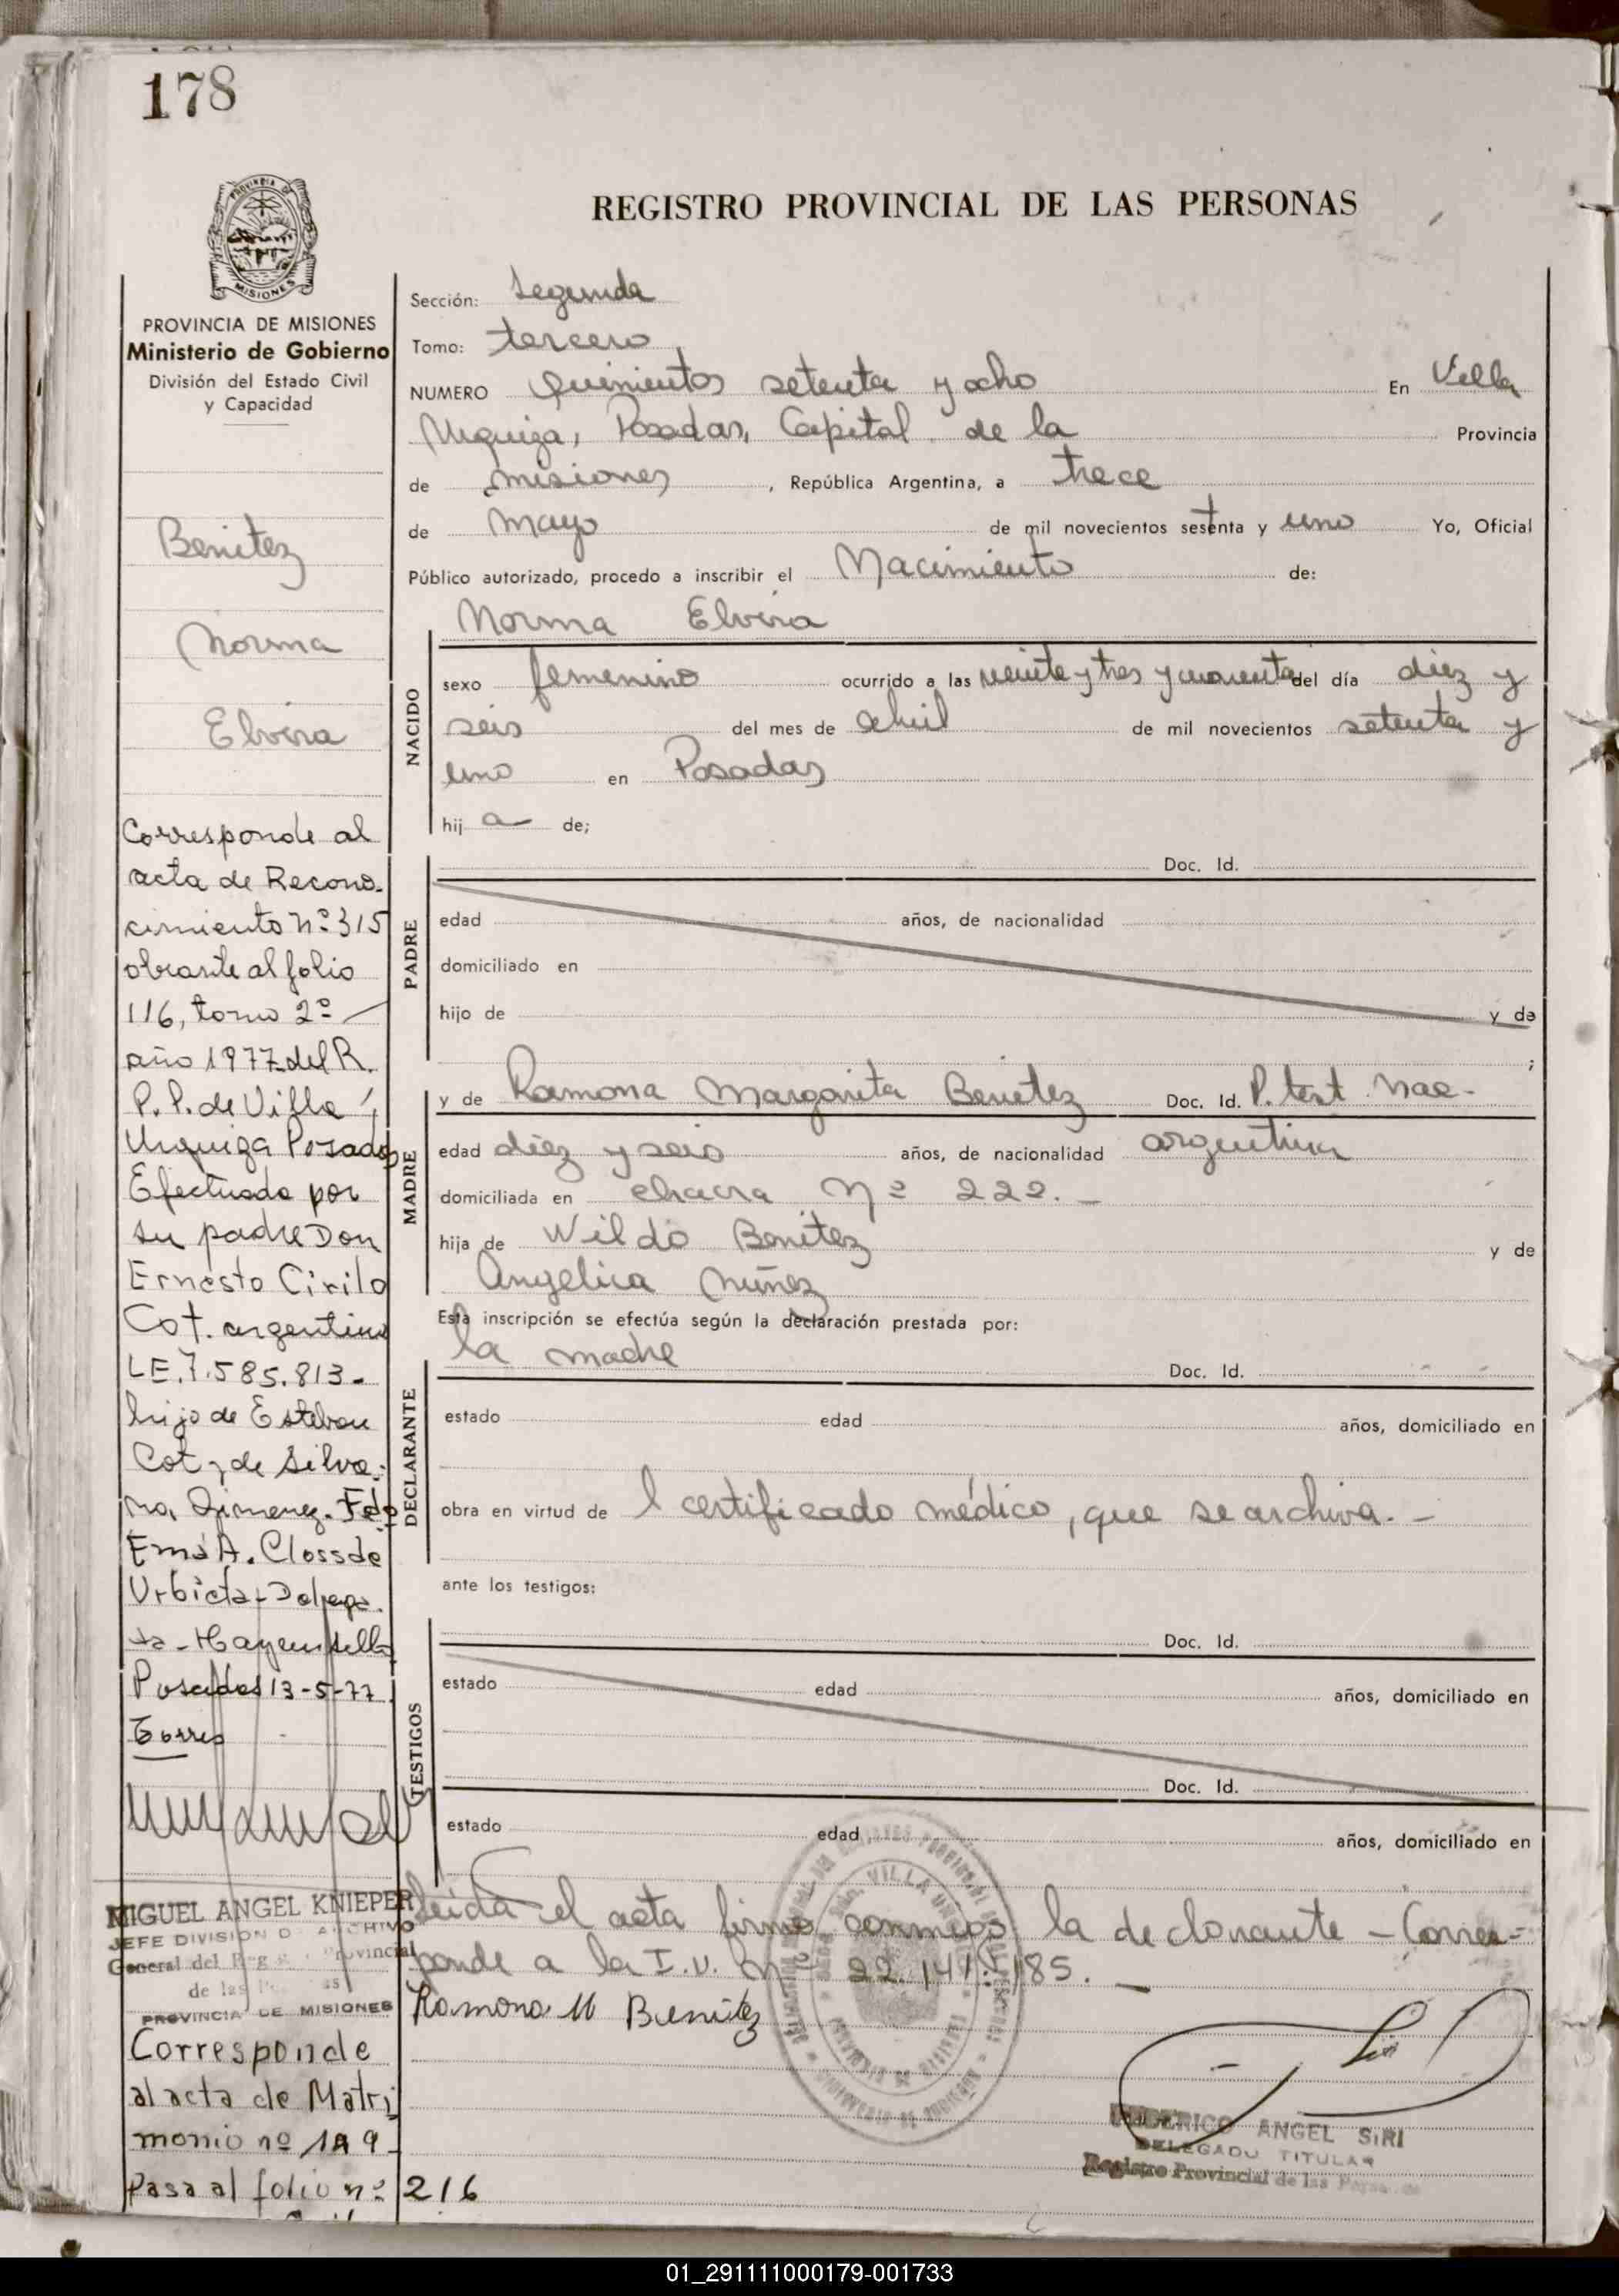 178
PROVINCIA DE MISIONES
Ministerio de Gobierno
División del Estado Civil
y Capacidad
Benitez
Norma
Elvira
Corresponde al
acta de Recono-
cimiento nº 315
obrante al folio
116, tomo 2º
año 1977 del R.
P. P. de Villa
Urquiza Posadas
Efectuado por
su padre Don
Ernesto Cirilo
Cot. argentino
LE. 7.585.813-
hijo de Esteban
Cot y de Silva-
na Gimenez. Fdo
Ema A. Closs de
Urbieta - Delega-
da - Hay un sello
Posadas 13-5-77
Torres
MIGUEL ANGEL KNIEPER
JEFE DIVISION ARCHIVO
General del Provincial
de las
PROVINCIA DE MISIONES
Corresponde
al acta de Matri
monio nº 189-
Pasa al folio nº 216
REGISTRO PROVINCIAL DE LAS PERSONAS
Sección: Segunda
Tomo: tercero
NUMERO Quinientos setenta y ocho En Villa
Urquiza, Posadas, Capital de la Provincia
de misiones, República Argentina, a trece
de Mayo de mil novecientos setenta y uno Yo, Oficial
Público autorizado, procedo a inscribir el Nacimiento de:
Norma Elvira
NACIDO
sexo femenino ocurrido a las veinte y tres y cuarenta del día diez y
seis del mes de abril de mil novecientos setenta y
uno en Posadas
hij a de;
PADRE
Doc. Id.
edad años, de nacionalidad
domiciliado en
hijo de y de
;
MADRE
y de Ramona Margarita Benitez Doc. Id. P. test. Nac-
edad diez y seis años, de nacionalidad argentina
domiciliada en chacra Nº 222.-
hija de Wildo Benitez y de
Angelica Nuñez
Esta inscripción se efectúa según la declaración prestada por:
DECLARANTE
la madre Doc. Id.
estado edad años, domiciliado en
obra en virtud de l certificado médico, que se archiva.-
ante los testigos:
TESTIGOS
Doc. Id.
estado edad años, domiciliado en
Doc. Id.
estado edad años, domiciliado en
Leida el acta firma conmigo la declarante - Corres=
ponde a la I.U. Nº 22.141.185.-
Ramona M Benitez
FEDERICO ANGEL SIRI
DELEGADO TITULAR
Registro Provincial de las
01_291111000179-001733